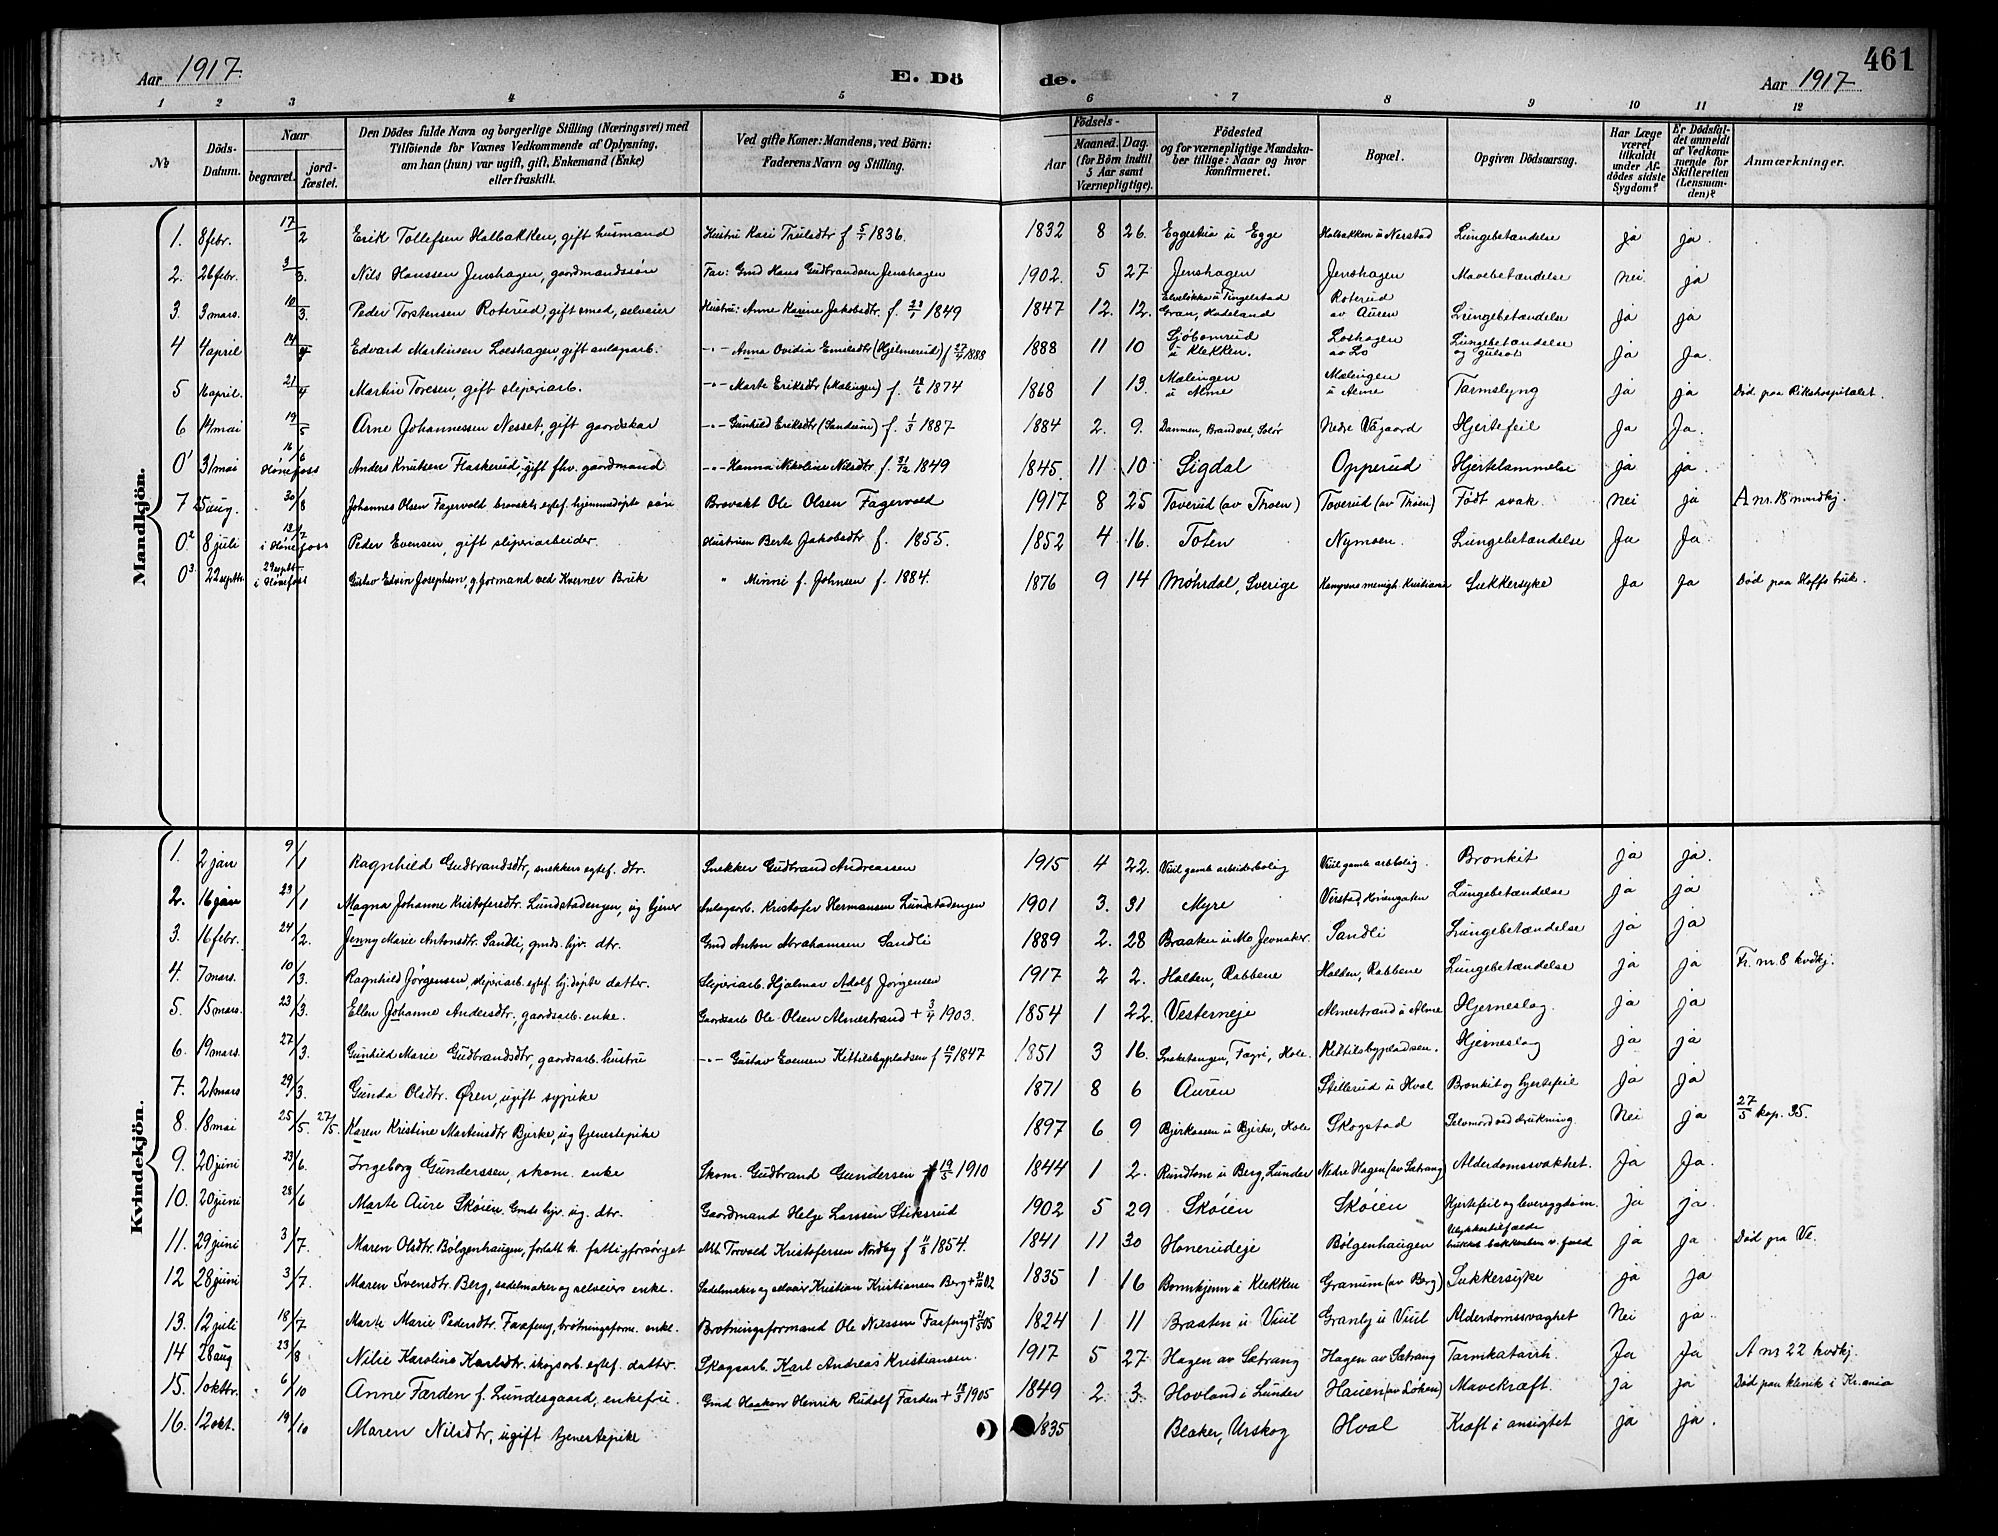 461
Aar 1917.
E. Dö
de.
Aar 1917
1 2 3 4 5 6 7 8 9 10 11 12
No
Döds-Datum.
Naar
begravet.
jord-fæstet.
Den Dödes fulde Navn og borgerlige Stilling (Næringsvei) med
Tilföiende for Voxnes Vedkommende af Oplysning,
om han (hun) var ugift, gift, Enkemand (Enke)
eller fraskilt.
Ved gifte Koner: Mandens, ved Börn:
Faderens Navn og Stilling.
Födsels-
Aar
Maaned. Dag.
(for Börn indtil
5 Aar samt
Værnepligtige).
Födested
og for værnepligtige Mandska-
ber tillige: Naar og hvor
konfirmeret.
Bopæl.
Opgiven Dödsaarsag.
Har Læge
været
tilkaldt
under Af-
dödes sidste
Sygdom?
Er Dödsfal-
det anmeldt
af Vedkom-
mende for
Skifteretten
(Lensman-
den)?
Anmærkninger.
Mandkjön.
1. 8 febr. 17/2 Erik Tollefsen Halbakken, gift husmand Hustru Kari Trulsdtr f 5/1 1836. 1832 8 26. Eggestua u Egge Halbakken u Nerstad Lungebetændelse ja ja.
2. 26 febr. 3/3. Nils Hanssen Jenshagen, gaardmandssön Far: Gmd Hans Gudbrandsen Jenshagen 1902. 5 27 Jenshagen Jenshagen Mavebetændelse nei ja
3. 3 mars. 10/3. Peder Torstensen Roterud, gift smed, selveier Hustru: Anne Karine Jakobsdtr. f. 1849 1847 12. 12. Elveløkka u Tingelstad Gran, Hadeland Roterud av Auren Lungebetændelse Ja Ja
4 4 april 14/4 Edvard Martinsen Loeshagen, gift anlagsarb. -"- Anna Ovidia Emilsdtr (Hjelmerud) f 27/4 1888 1888 11 10 u Klekken. Loshagen av Lo Lungebetændelse og gulsot Ja Ja.
5 16 april. 21/4 Martin Toresen, gift sliperiarb. -"- Marte Eriksdtr (Malingen) f. 1874 1868 1 13. Mælingen u Alme Mælingen u Alme Tarmslyng Ja ja Död paa Rikshospitalet.
6 14 mai 19/5 Arne Johannessen Nesset, gift gaardskar -"- Gunhild Eriksdtr (Sandeien) f. 1/3 1887 1884 2. 9. Dammen, Brandval, Solør Nedre Vagaard Hjertefeil Ja Ja.
0¹ 31 mai 16/6 Hønefoss Anders Knutsen Flaskerud, gift fhv. gaardmand -"- Hanna Nikoline Nilsdtr f. 31/12 1849 1845. 11 10 Sigdal Opperud Hjertelammelse ja ja.
7 25 aug. 30/8 Johannes Olsen Fagervold brovakts egtef. hjemmedøpt søn Brovakt Ole Olsen Fagervold 1917 8 25 Toverud (av Thoen) Toverud (av Thoen) Født svak. Nei ja A nr. 18 mndkj.
0² 8 juli 12/7 i Hønefoss Peder Evensen, gift sliperiarbeider. Hustruen Berte Jakobsdtr f. 1855. 1852 4 16. Toten Nymoen. Lungebetændelse Ja Ja.
0³. 22 septb. 29 septb. i Hønefoss Gustav Edvin Josephsen, g. formand ved Kværner Bruk " Minni f. Johnsen f. 1884. 1876 9 14 Møhrdal, Sverige Kampens menigh Kristiania Sukkersyke Ja Ja Død paa Hoffs bruk.
Kvindekjön.
1. 2 jan 9/1 Ragnhild Gudbrandsdtr, snekkers egtef. dtr. Snekker Gudbrand Andreassen 1915 4 22. Viul gamle arbeiderbolig Viul gamle arbbolig. Bronkit ja ja.
2. 16 jan 23/1 Magna Johanne Kristofersdtr. Lundstadengen, ug tjener Anlagsarb. Kristofer Hermansen Lundstadengen 1901 3. 31 Myre Verstad, Lungebetændelse ja ja
3. 16 febr. 24/2. Jenny Marie Antonsdtr. Sandli, gmds. hjv. dtr. Gmd Anton Abrahamsen Sandli 1889 2. 28 Braaten u Mo Jevnaker. Sandli Lungebetændelse ja ja
4. 7 mars. 10/3. Ragnhild Jørgensen, sliperiarb. egtef. hj.døpte datter. Sliperiarb. Hjalmar Adolf Jørgensen 1917 2 2. Halden, Rabbene Halden, Rabbene Lungebetændelse ja ja Fr. nr. 8 kvdkj.
5. 15 mars. 23/3. Ellen Johanne Andersdtr, gaardsarb. enke. Gaardsarb Ole Olsen Almestrand + 3/4 1903. 1854 1 22. Vesterneje Almestrand u Alme Hjerneslag. ja ja
6. 19 mars. 27/3. Gunhild Marie Gudbrandsdtr, gaardsarb. hustru -"- Gustav Evensen Kittilsbypladsen f 1847 1851 3 16. Sneketangen, Fægri, Hole. Kittilsbypladsen. Hjerneslag ja ja
7. 21 mars 29/3. Gunda Olsdtr. Øren, ugift sypike 1871 8 6 Auren Stillerud u Hval Bronkit og hjertefeil ja ja
8. 18 mai 25/5. 27/5. Karen Kristine Martinsdtr Bjerke, ug tjenestepike 1897 6 9 Bjerkaasen u Bjerke, Hole Skogstad Selvmord ved drukning. Nei ja 27/5 kap. 35.
9. 20 juni 23/6. Ingeborg Gunderssen, skom. enke Skom. Gudbrand Gundersen + 19/5 1910 1844 1 2. Rundtom u Berg, Lunder Nedre Hagen (av Sætrang) Alderdomssvakhet. Ja Ja.
10. 20 juni 28/6 Marte Aure Skøien. Gmds hjv. ug. dtr. Gaardmand Helge Larssen Stiksrud 1902 5 29 Skøien Skøien Hjertefeil og leversygdom. ja ja.
11. 29 juni 3/7. Maren Olsdtr. Bølgenhaugen, forlatt k. fattigforsørget Arb. Torvald Kristofersen Nordby f 11/8 1854. 1841 11 30 Honerudeje Bølgenhaugen Ulykkestilfælde v. fald ja ja. Død paa Ve.
12 28 juni 3/7. Maren Svensdtr. Berg, sadelmaker og selveiers enke. Sadelmaker og selveier Kristian Kristiansen Berg + 02 1835 1 16 u Klekken Granum (av Berg) Sukkersyke ja ja
13. 12 juli 18/7 Marte Marie Pedersdtr. Fasfeng, brøtningsform. enke. Brøtningsformand Ole Nilssen Fasfeng + 05 1824 1 11 Braaten u Viul Granly u Viul Alderdomssvaghet Nei ja.
14 28 aug 23/8 Nilie Karoline Karlsdtr. skogsarb. egtef. datter. Skogsarb. Karl Andreas Kristiansen. 1917 5 27 Hagen av Sætrang Hagen av Sætrang Tarmkatarrh. Ja Ja A nr 22 kvdkj.
15. 1 oktbr. 6/10 Anne Færden f. Lundesgaard, enkefru Gmd Haakon Henrik Rudolf Færden + 1905 1849 2 3. Hovland i Lunder Hauen (av Løken) Mavekræft. ja ja Død paa klinik i Kr.ania
16. 12 okt. 19/10 Maren Nilsdtr, ugift tjenestepike 1835 Blaker, Urskog Hval Kræft i ansigtet ja ja.